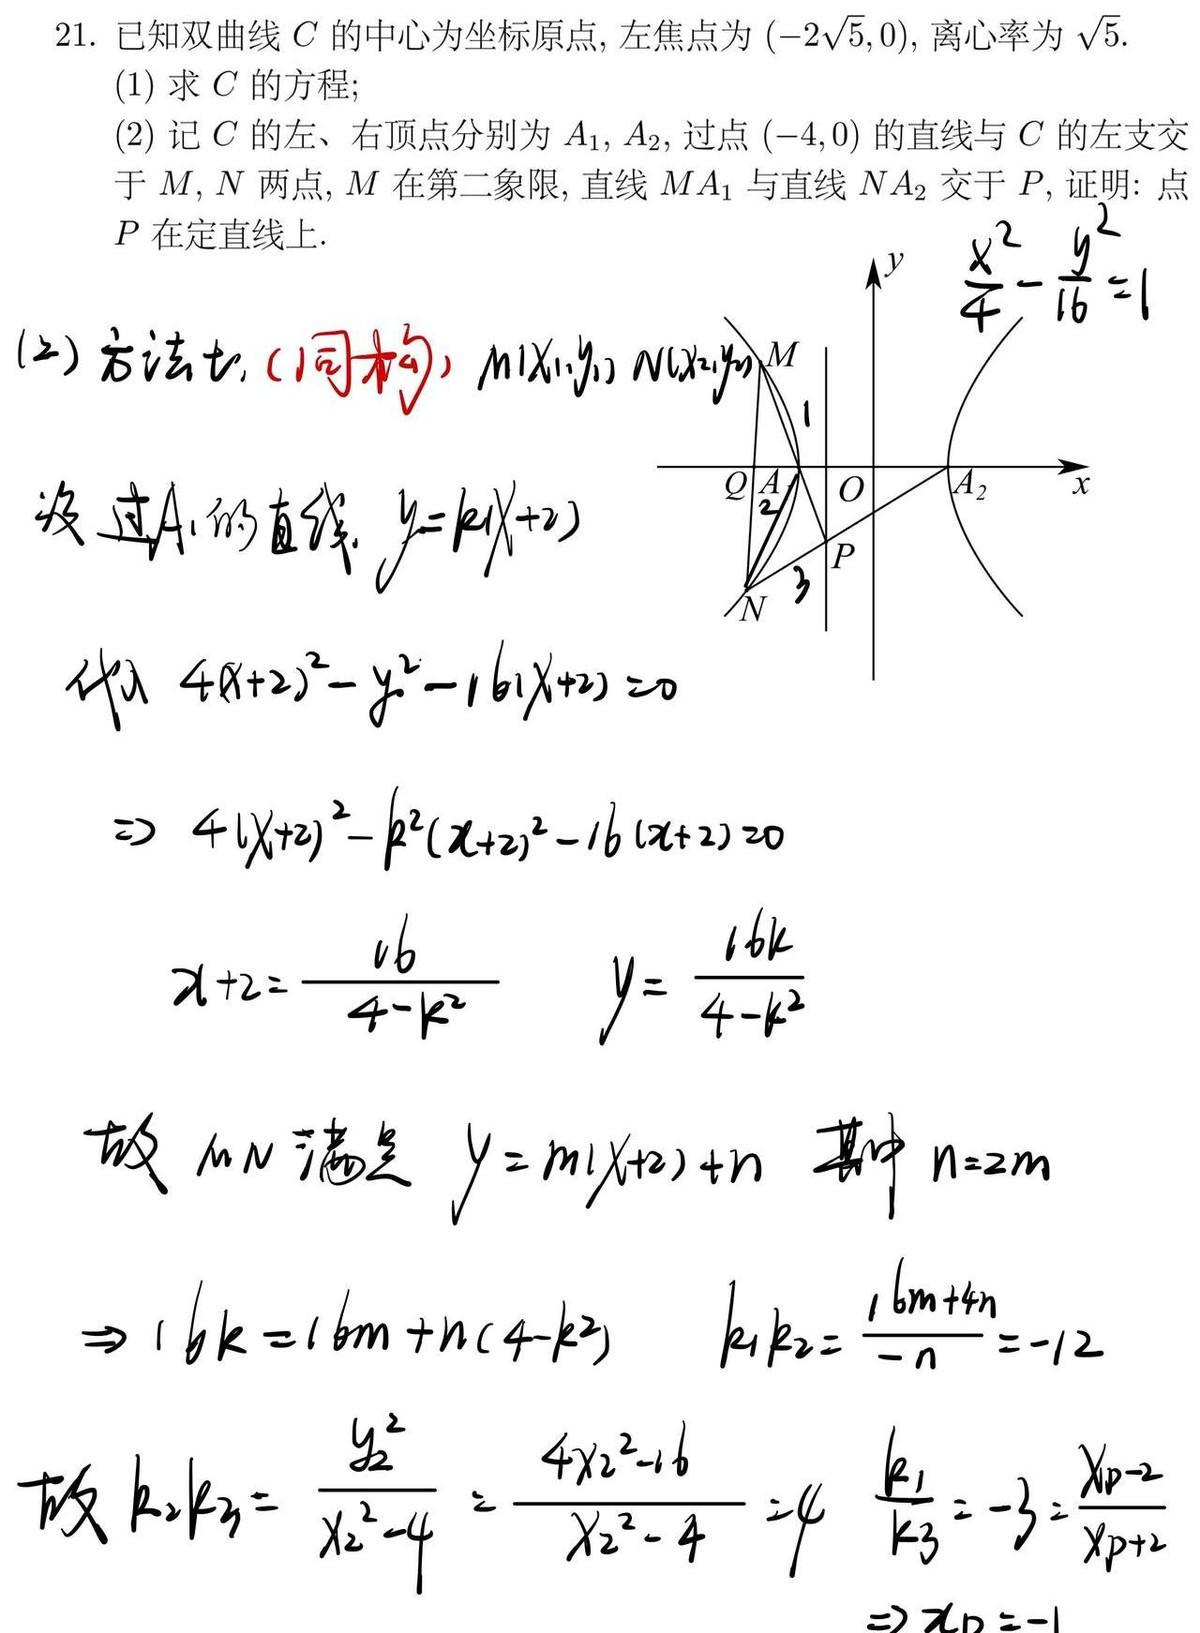 21. 已知双曲线 C 的中心为坐标原点, 左焦点为 (−2√5, 0), 离心率为 √5.
(1) 求 C 的方程;
(2) 记 C 的左、右顶点分别为 A₁, A₂, 过点 (−4, 0) 的直线与 C 的左支交
于 M, N 两点, M 在第二象限, 直线 MA₁ 与直线 NA₂ 交于 P, 证明: 点
P 在定直线上.
x²/4 − y²/16 = 1
y
(2) 方法七, (同构) M(x₁,y₁) N(x₂,y₂)
M
1
Q A₁ O A₂ x
2
P
3
N
设 过A₁的直线, y=k(x+2)
代入 4(x+2)² − y² − 16(x+2) = 0
⇒ 4(x+2)² − k²(x+2)² − 16(x+2) = 0
x+2 = 16/(4−k²) y = 16k/(4−k²)
故 MN 满足 y = m(x+2)+n 其中 n=2m
⇒ 16k = 16m + n(4−k²) k₁k₂ = (16m+4n)/(−n) = −12
故 k₂k₃ = y₂²/(x₂²−4) = (4x₂²−16)/(x₂²−4) = 4 k₁/k₃ = −3 = (xₚ−2)/(xₚ+2)
⇒ xₚ = −1